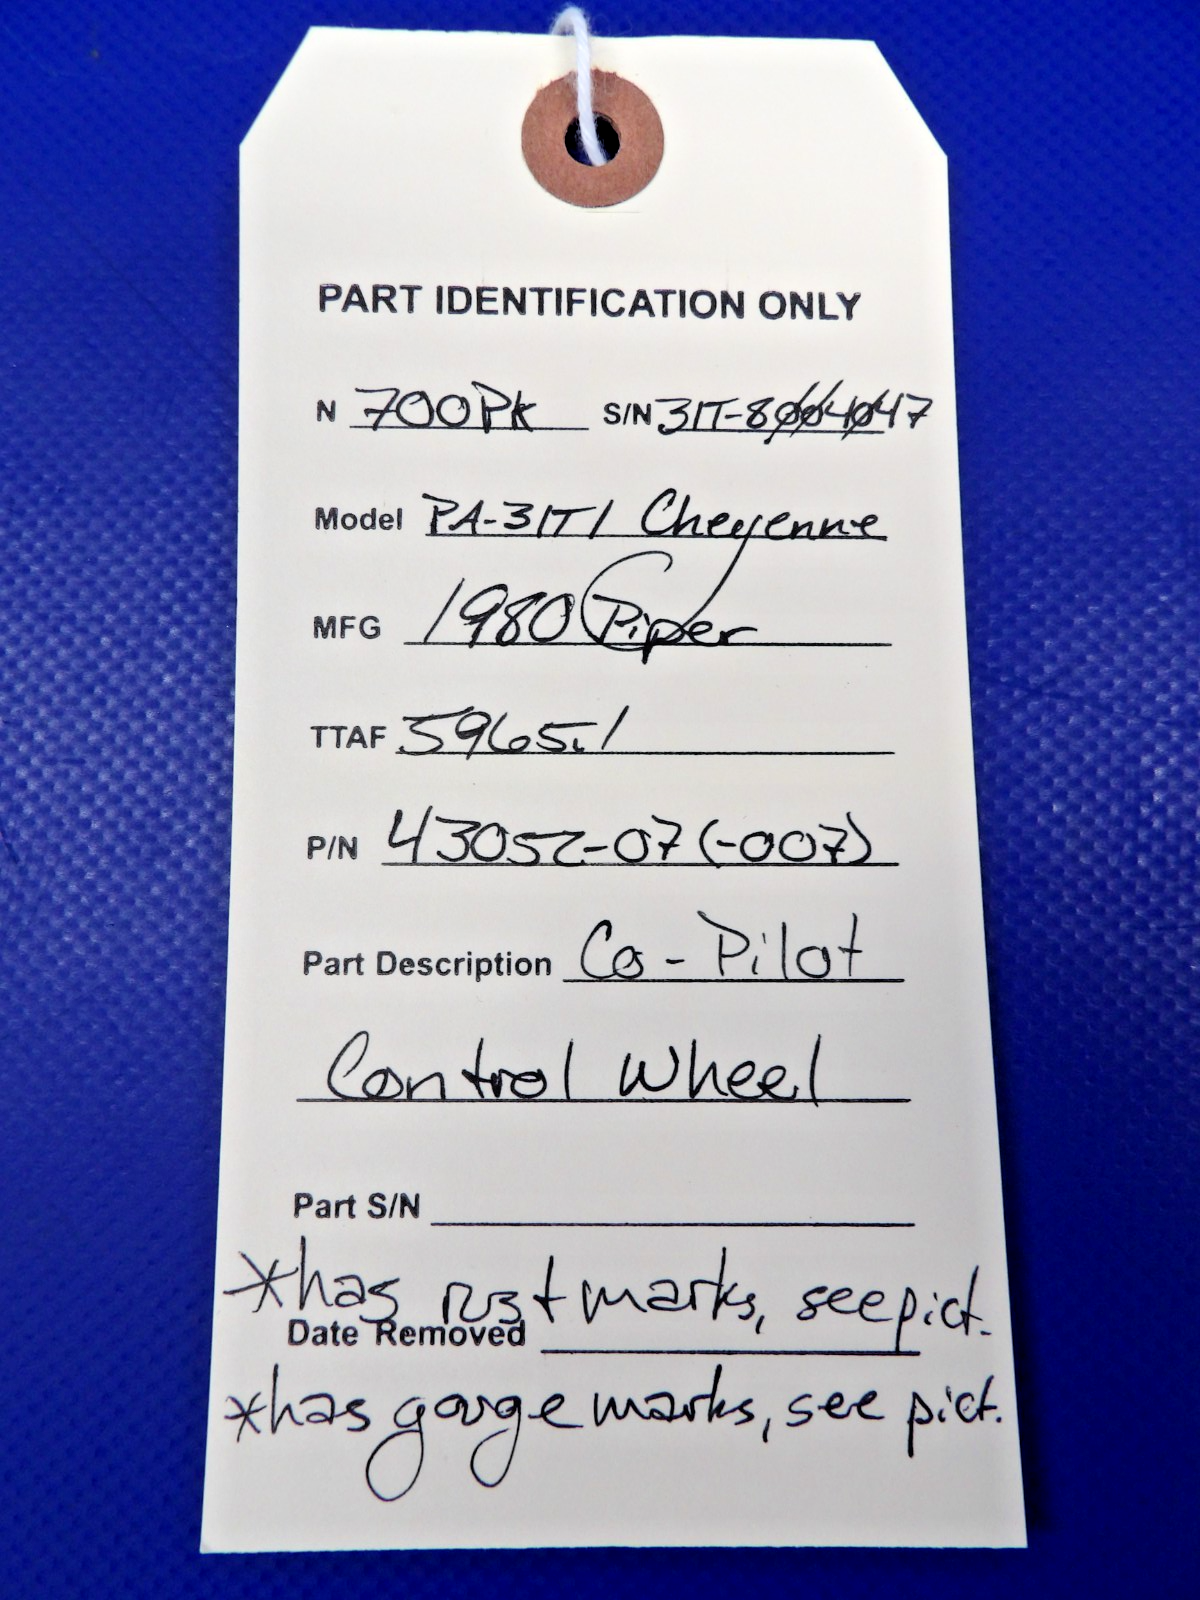 PART IDENTIFICATION ONLY
N 700PK S/N 31T-8004047
Model PA-31T1 Cheyenne
MFG 1980 Piper
TTAF 5965.1
P/N 43052-07 (-007)
Part Description Co-Pilot
Control Wheel
Part S/N
*has rust marks, see pict.
Date Removed
*has gouge marks, see pict.